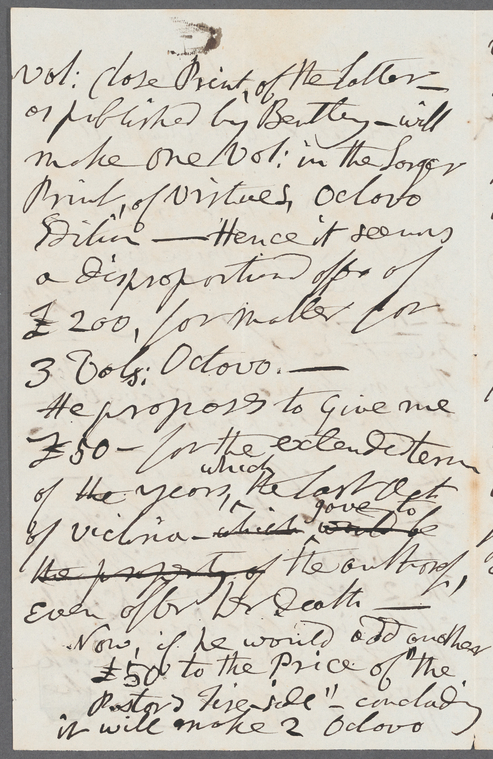 Vol: close Print, of the latter –
as published by Bentley – will
make one Vol: in the larger
Print, of Virtues, Octavo
Edition — Hence it seems
a disproportiond offer of
£200, for matter for
3 Vols: Octavo. —
He proposes to give me
£50 – for the extended term
of the years, which the last Act
of Victoria – which would be gave to
the property of the authors,
Even after his Death —
Now, if he would add another
£50 to the Price of "the
Pastor's Fire-side" – concluding
it will make 2 Octavo